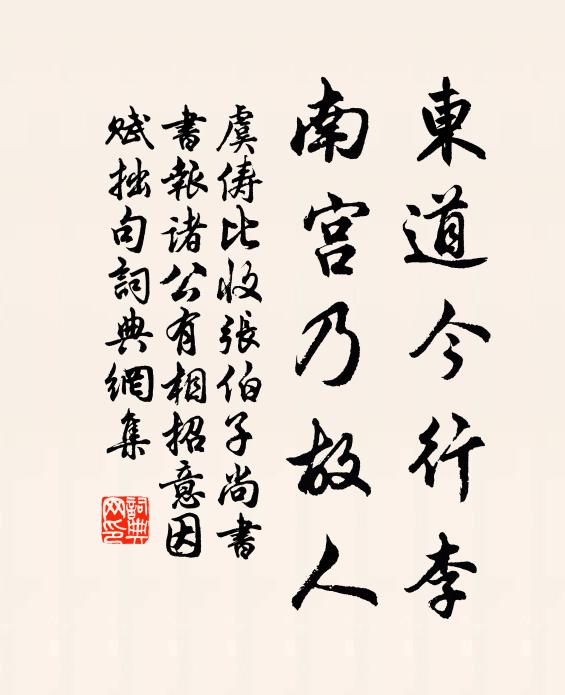 東道今行李
南宮乃故人
虞儔比收張伯子尚書
書報諸公有相招意因
賦拙句詞典網集
詞典網印